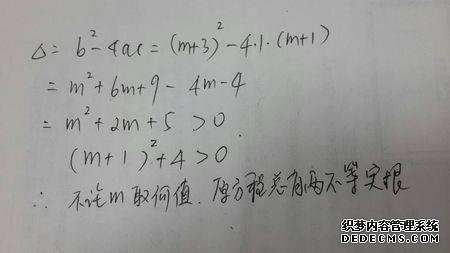 △= b²-4ac = (m+3)²-4·1·(m+1)
= m²+6m+9-4m-4
= m²+2m+5 >0
(m+1)²+4>0
∴ 不论m取何值.原方程总有两不等实根
织梦内容管理系统
DEDECMS.COM